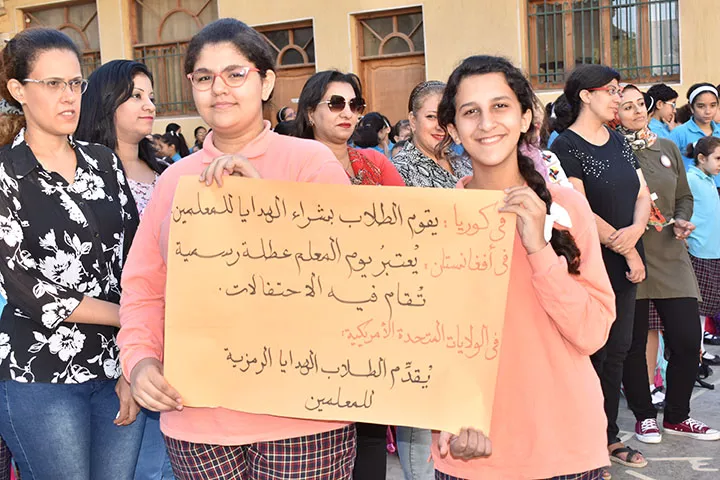 في كوريا : يقوم الطلاب بشراء الهدايا للمعلمين
في أفغانستان : يُعتبرُ يوم المعلم عطلة رسمية
تُقام فيه الاحتفالات .
في الولايات المتحدة الأمريكية:
يُقدِّم الطلاب الهدايا الرمزية
للمعلمين